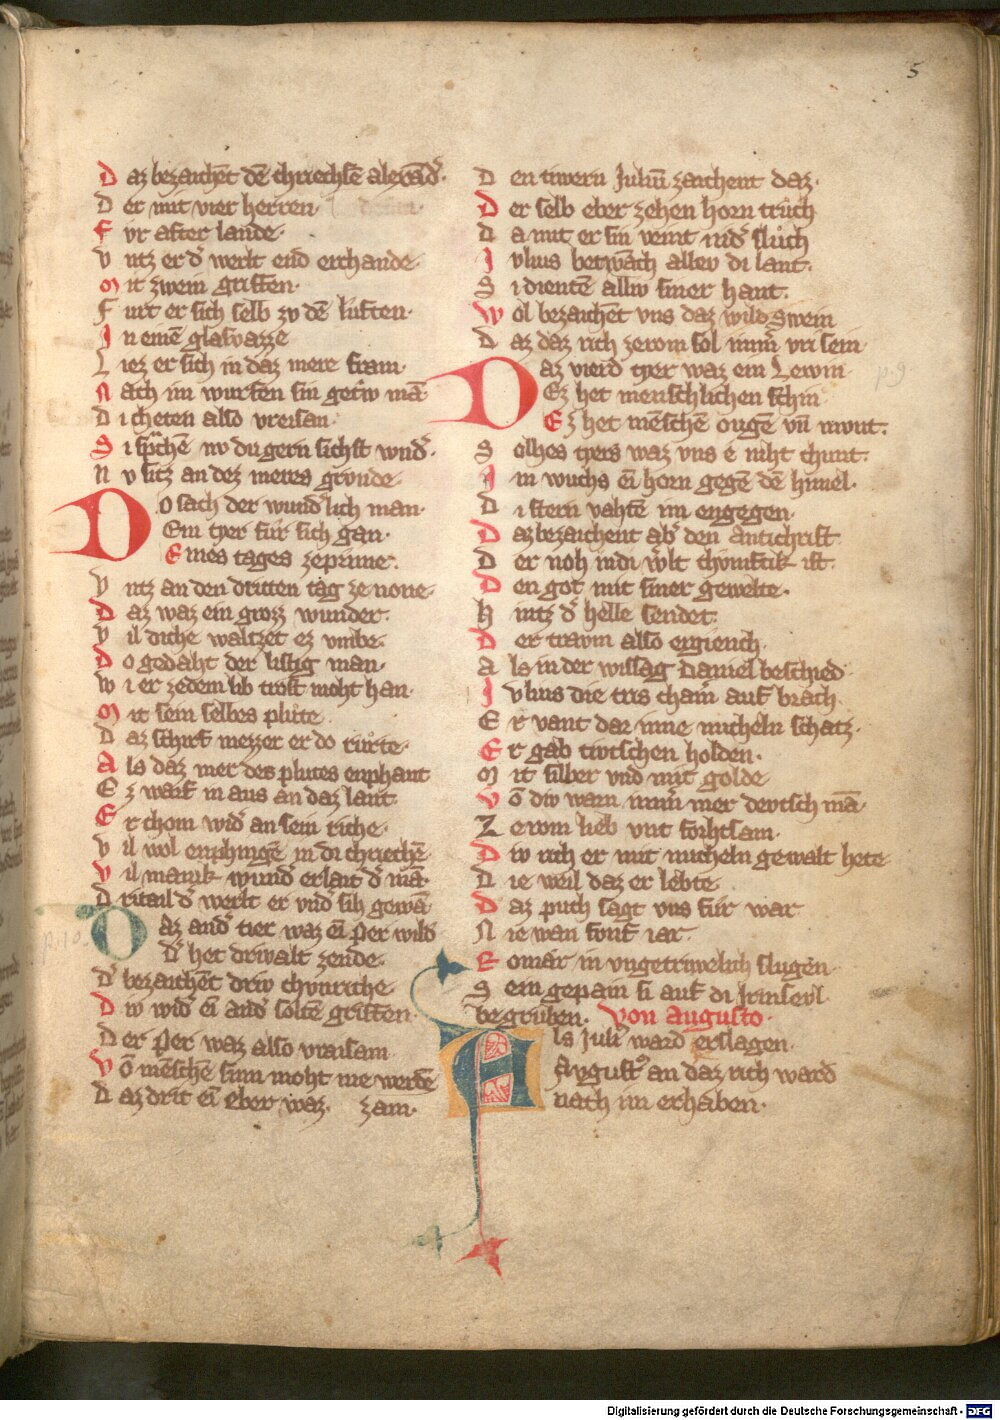 5
D az bezaichēt dē chriechsē alexād᷑.
D er mit vier herren·
F vr after lande·
V ntz er d᷑ werlt end erchande·
M it zwein griffen·
F urt er sich selb zv dē luften·
I n einē glasvazze
L iez er sich in daz mere fram·
N ach im wurfen sin getriv mā
D i cheten also vreisan·
S i sp̃chē nv du gern sichst wnd᷑·
N v sitz an dez meres grvnde·
D o sach der wund᷑lich man·
Ein tyer fur sich gan·
E ines tages ze prime·
V ntz an den dritten tag ze none·
D az waz ein grozz wunder·
V il diche waltzet ez vmbe·
D o gedaht der listig man·
W i er ze dem lib trost moht han·
M it sein selbes plůte
D az scharf mezzer er do růrte·
A ls daz mer des plutes enphant
E z warf in aus an daz lant·
E r chom wid᷑ an sein riche·
V il wol enphingē in di chriechē
V il manik wund᷑ erlait d᷑ mā·
D ritail d᷑ werlt er vnd᷑ sih gewā
D az and᷑ tier waz eī per wild
D᷑ het driwalt zende·
D᷑ bezaichēt driv chvnriche
D iv wid᷑ eī and᷑ soltē griffen
D er per waz also vraisam·
V ō mēschē sinn moht nie werdē
D az drit eī eber waz· zam·
D en tiwern Juliū zaichent daz·
D er selb eber zehen horn trůch
D a mit er sin veint nid᷑ slůch
I vlius betwāch allev di lant·
S i dientē alliv siner hant·
W ol bezaichēt vns daz wild swein
D az daz rich ze rom sol imm᷑ vri sein
D az vierd tyer waz ein Lewin
Ez het menschlichen schin
E z het mēschē ougē vn̄ mvnt·
S olhes tyers waz vns e niht chunt·
I m wuchs eī horn gegē dē himel·
D i stern vahtē im engegen·
D az bezaichent ab᷑ den antichrist
D er noh in di w᷑lt chvnftik ist·
D en got mit siner gewelte·
H intz d᷑ helle sendet·
D er travm also ergiench·
A ls in der wissag Daniel beschied·
I vlius die tris cham᷑ auf brach·
E r vant dar inne micheln schatz·
E r gab tivtschen holden·
M it silber vnd mit golde
V ō div warn imm᷑ mer devtsch mā·
Z e rom lieb vnt forhtsam·
D iv rich er mit micheln gewalt hete
D ie weil daz er lebte·
D az puch sagt vns fur war
N ie wan fonf iar·
R omar in vngetriwelich slugen·
S ein gepain si auf di Irinseyl
begruben· Von Augusto·
Als Juli᷑ ward erslagen·
Avgust᷒ an daz rich ward
nach im erhaben·
Digitalisierung gefördert durch die Deutsche Forschungsgemeinschaft - DFG